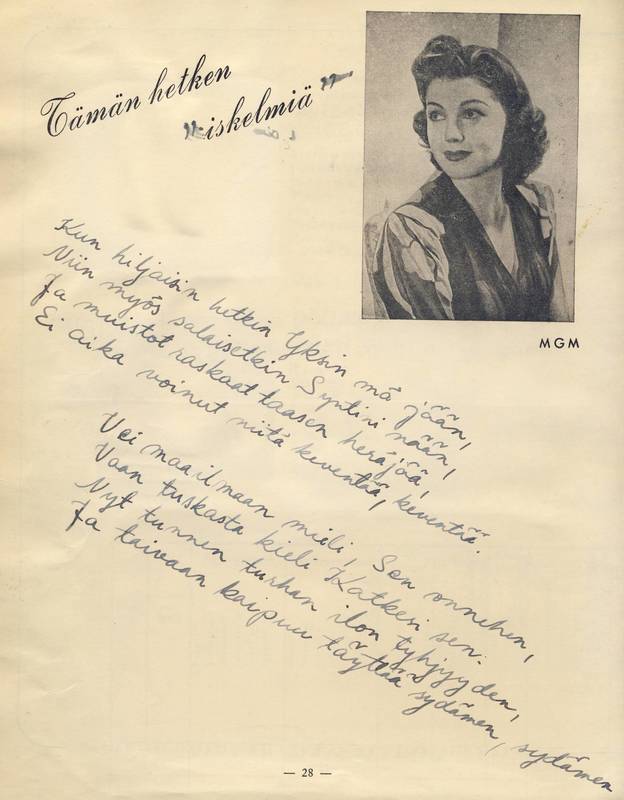 Tämän hetken
iskelmiä
MGM
Kun hiljaisin hetkin Yksin mä jään,
Niin myös salaisetkin Syntini nään,
Ja muistot raskaat taasen heräjää,
Ei aika voinut niitä keventää, keventää.
Vei maailmaan mieli, Sen onnehen,
Vaan tuskasta kieli Katkesi sen.
Nyt tunnen turhan ilon tyhjyyden,
Ja taivaan kaipuu täyttää sydämen, sydämen
— 28 —